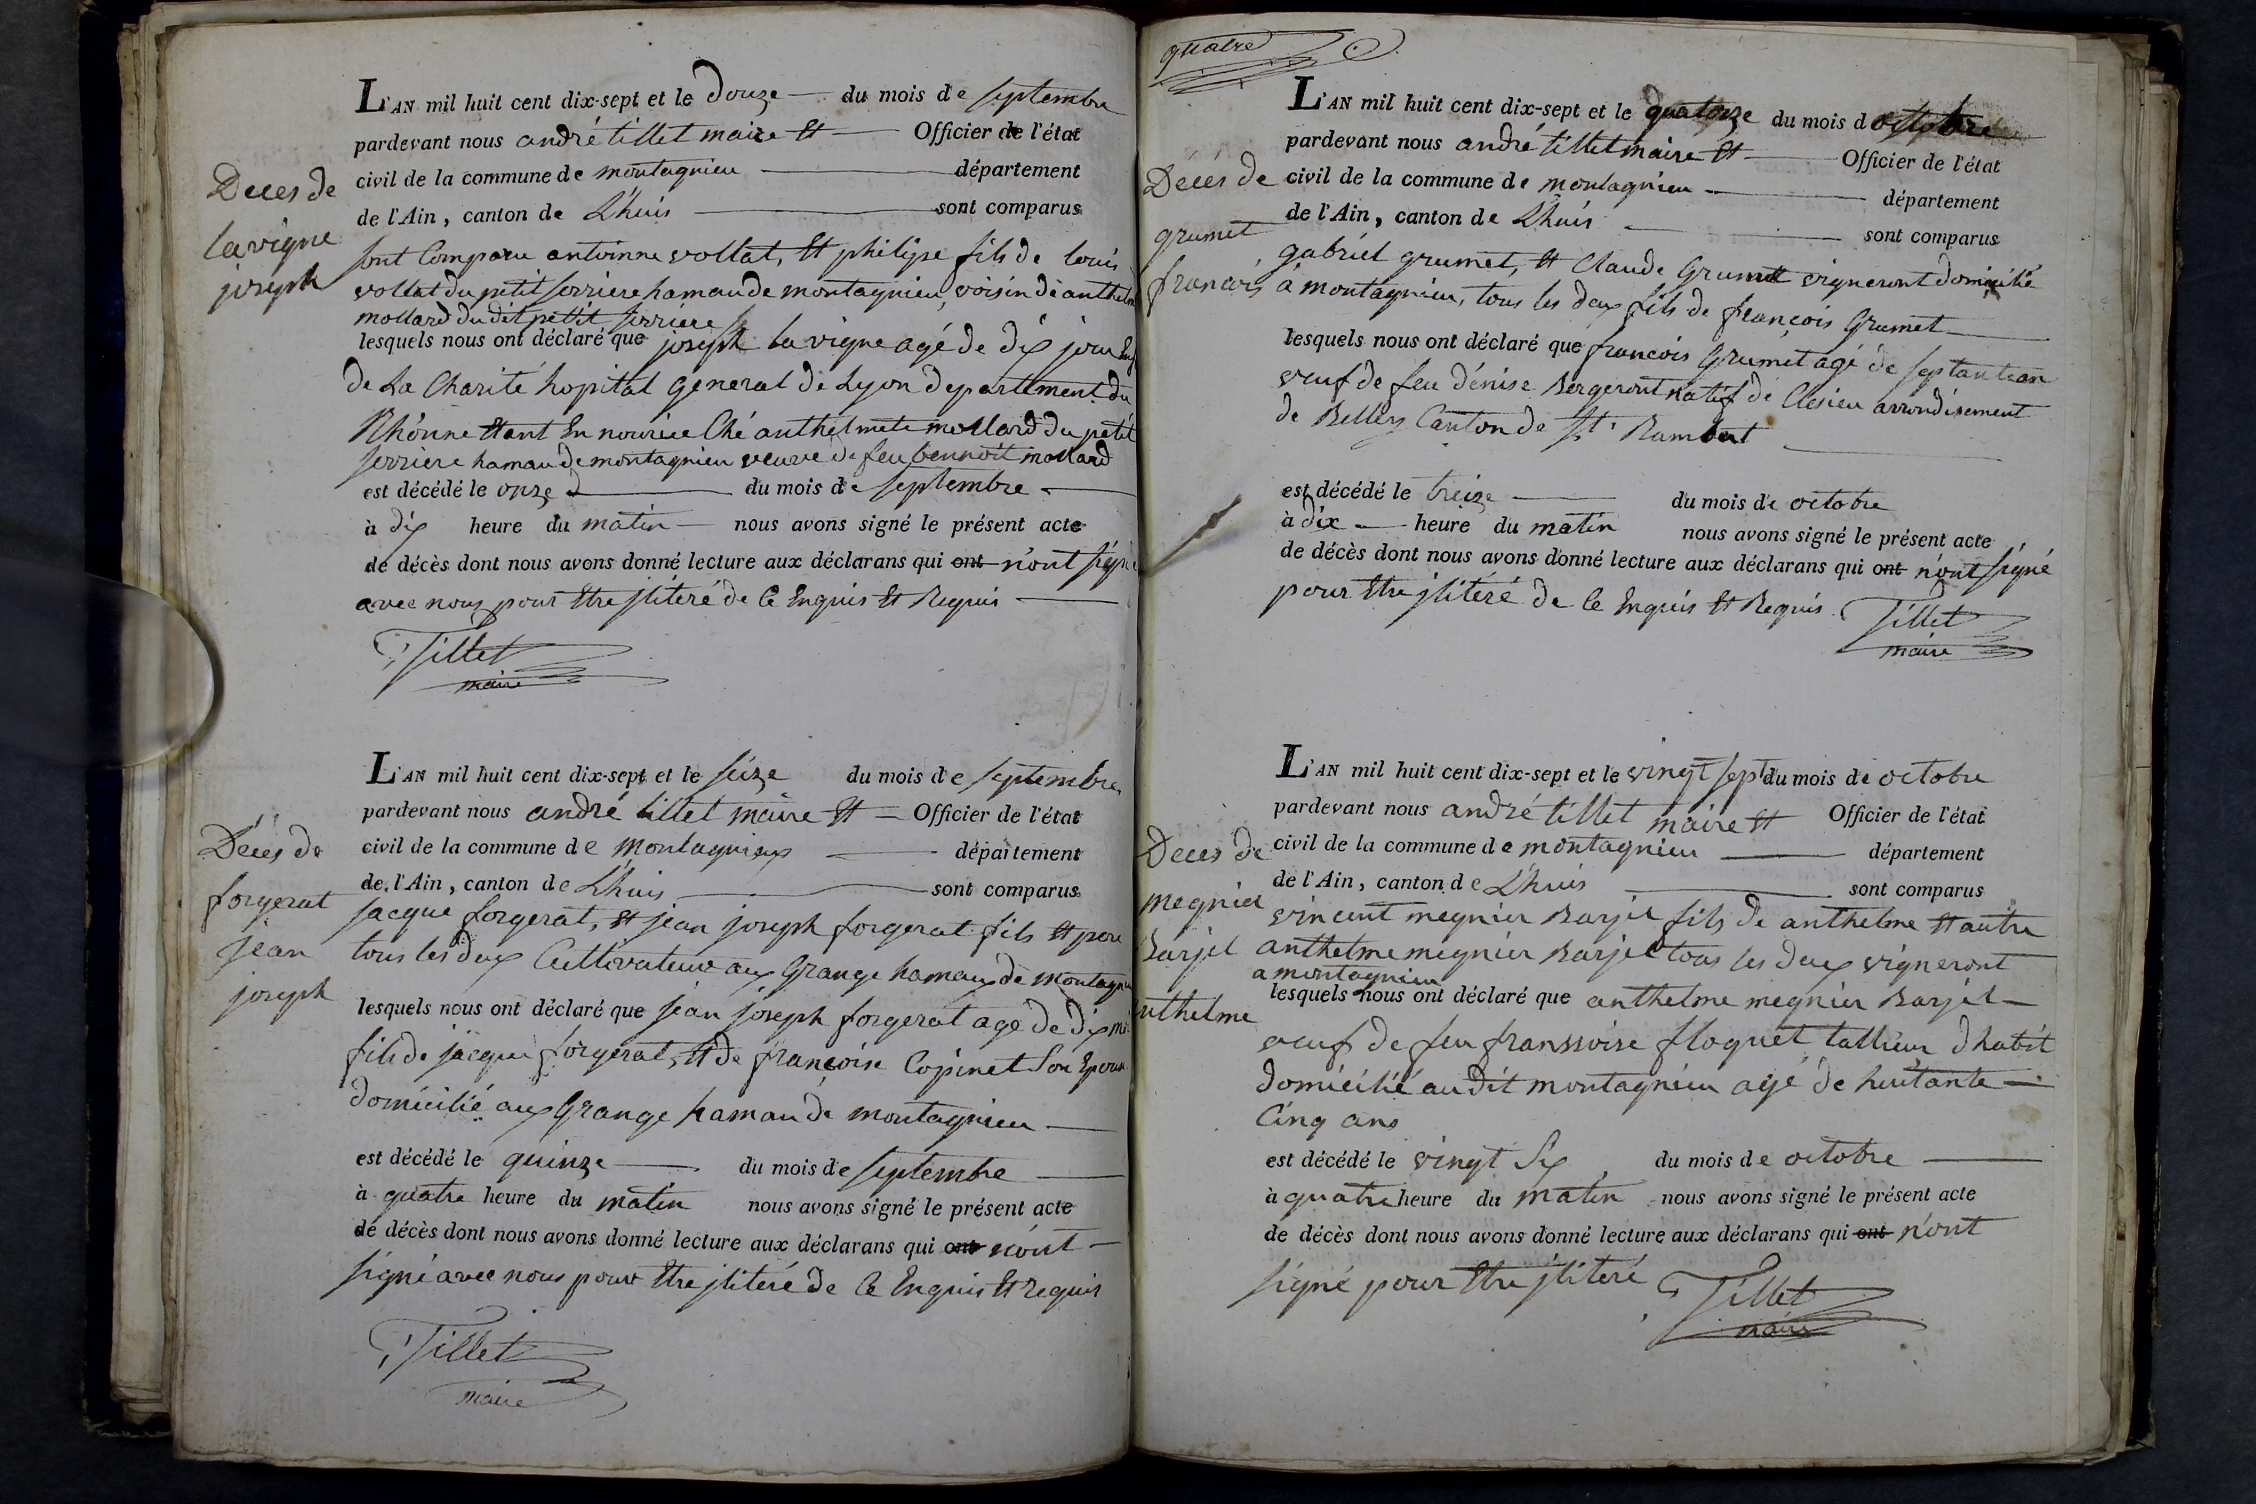 Deces de
lavigne
joseph
L'AN mil huit cent dix-sept et le douze du mois de septembre
pardevant nous andré tillet maire Et Officier de l'état
civil de la commune de montagnieu département
de l'Ain, canton de L'huis sont comparus
sont Comparu antoinne vollat, Et philipe fils de louis
vollat du petit serriere hamau de montagnieu, voisin de anthelme
mollard du dit petit serriere
lesquels nous ont déclaré que joseph la vigne agé de dix jour
de La Charité hopital general de Lyon departement du
Rhônne Etant En nourice Ché anthelmete mollard du petit
serriere hamau de montagnieu veuve de feu bennoit mollard
est décédé le onze du mois de septembre
à dix heure du matin nous avons signé le présent acte
de décès dont nous avons donné lecture aux déclarans qui ont n'ont signé
avec nous pour Etre jlitéré de Ce Enquis Et Requis
Tillet
maire
Déces de
forgerat
jean
joseph
L'AN mil huit cent dix-sept et le seize du mois de septembre
pardevant nous andré tillet maire Et Officier de l'état
civil de la commune de montagnieux département
de l'Ain, canton de L'huis sont comparus
jacque forgerat, Et jean joseph forgerat fils Et pere
tous les deux Cultivateur aux Grange hamaux de montagnieu
lesquels nous ont déclaré que jean joseph forgerat age de dix
fils de jacque forgerat, Et de françoise Copinet Son Epouse
domicilié aux Grange hamau de montagnieu
est décédé le quinze du mois de septembre
à quatre heure du matin nous avons signé le présent acte
de décès dont nous avons donné lecture aux déclarans qui ont n'ont
signé avec nous pour Etre jlitéré de Ce Enquis Et Requis
Tillet
maire
quatre
Deces de
grumet
francois
L'AN mil huit cent dix-sept et le quatorze du mois d octobre
pardevant nous andré tillet maire Et Officier de l'état
civil de la commune de montagnieu département
de l'Ain, canton de L'huis sont comparus
gabriel grumet, Et Claude Grumet vigneront domicilié
a montagnieu, tous les deux fils de françois Grumet
lesquels nous ont déclaré que francois Grumet agé de septante an
veuf de feu dénise Bergeront natif de Clesieu arrondisement
de Belley Canton de St Rambert
est décédé le treize du mois de octobre
à dix heure du matin nous avons signé le présent acte
de décès dont nous avons donné lecture aux déclarans qui ont n'ont signé
pour Etre jlitéré de Ce Enquis Et Requis
Tillet
maire
Deces de
megnier
Barjel
anthelme
L'AN mil huit cent dix-sept et le vingt sept du mois de octobre
pardevant nous andré tillet maire Et Officier de l'état
civil de la commune de montagnieu département
de l'Ain, canton de L'huis sont comparus
vincent megnier Barjel fils de anthelme Et autre
anthelme megnier Barjel tous les deux vigneront
a montagnieu
lesquels nous ont déclaré que anthelme megnier Barjel
veuf de feu franssoise floquet tallieur d'habit
domicilié audit montagnieu agé de huitante
Cinq ans
est décédé le vingt Six du mois de octobre
à quatre heure du matin nous avons signé le présent acte
de décès dont nous avons donné lecture aux déclarans qui ont n'ont
signé pour Etre jlitéré
Tillet
maire